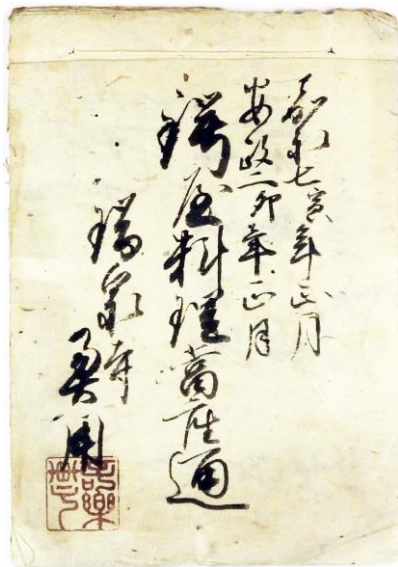 嘉永七寅年正月
安政二卯年正月
鍔屋料理萬座通
瑞泉寺
用